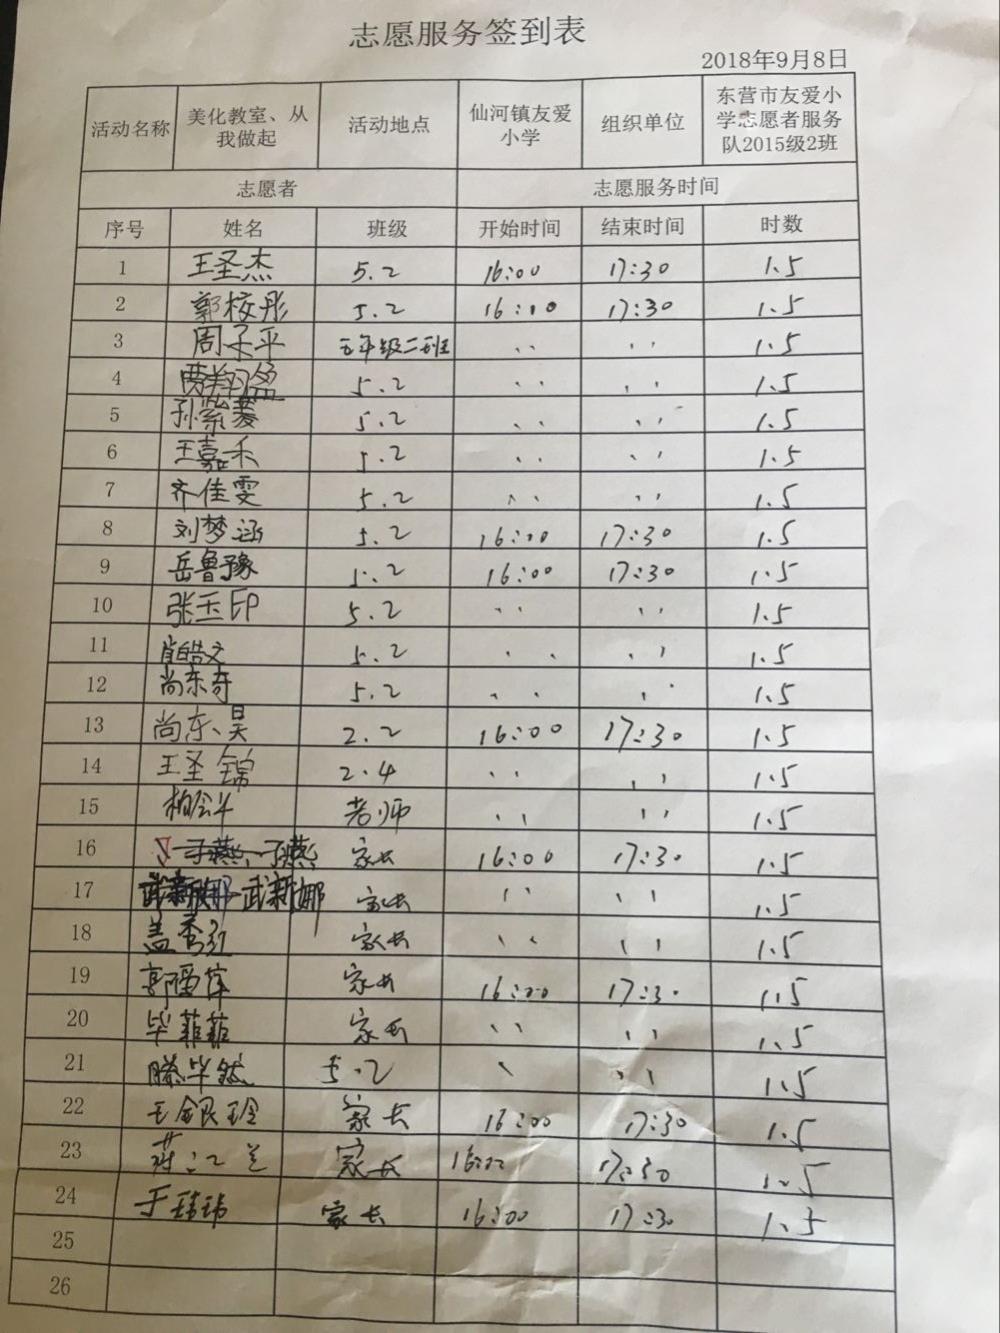 志愿服务签到表
2018年9月8日
活动名称 美化教室、从我做起 活动地点 仙河镇友爱小学 组织单位 东营市友爱小学志愿者服务队2015级2班
志愿者 志愿服务时间
序号 姓名 班级 开始时间 结束时间 时数
1 王圣杰 5.2 16:00 17:30 1.5
2 郭桉彤 5.2 16:00 17:30 1.5
3 周子平 五年级二班 、、 、、 1.5
4 5.2 、、 、、 1.5
5 孙紫菱 5.2 、、 、、 1.5
6 王嘉禾 5.2 、、 、、 1.5
7 齐佳雯 5.2 、、 、、 1.5
8 刘梦涵 5.2 16:00 17:30 1.5
9 岳鲁豫 5.2 16:00 17:30 1.5
10 张玉印 5.2 、、 、、 1.5
11 肖皓文 5.2 、、 、、 1.5
12 尚东奇 5.2 、、 、、 1.5
13 尚东昊 2.2 16:00 17:30 1.5
14 王圣锦 2.4 、、 、、 1.5
15 老师 、、 、、 1.5
16 于燕 家长 16:00 17:30 1.5
17 武新娜 家长 、、 、、 1.5
18 盖秀红 家长 、、 、、 1.5
19 家长 16:00 17:30 1.5
20 毕菲菲 家长 、、 、、 1.5
21 5.2 、 、、 1.5
22 王银玲 家长 16:00 17:30 1.5
23 家长 16:00 17:30 1.5
24 于玮玮 家长 16:00 17:30 1.5
25
26